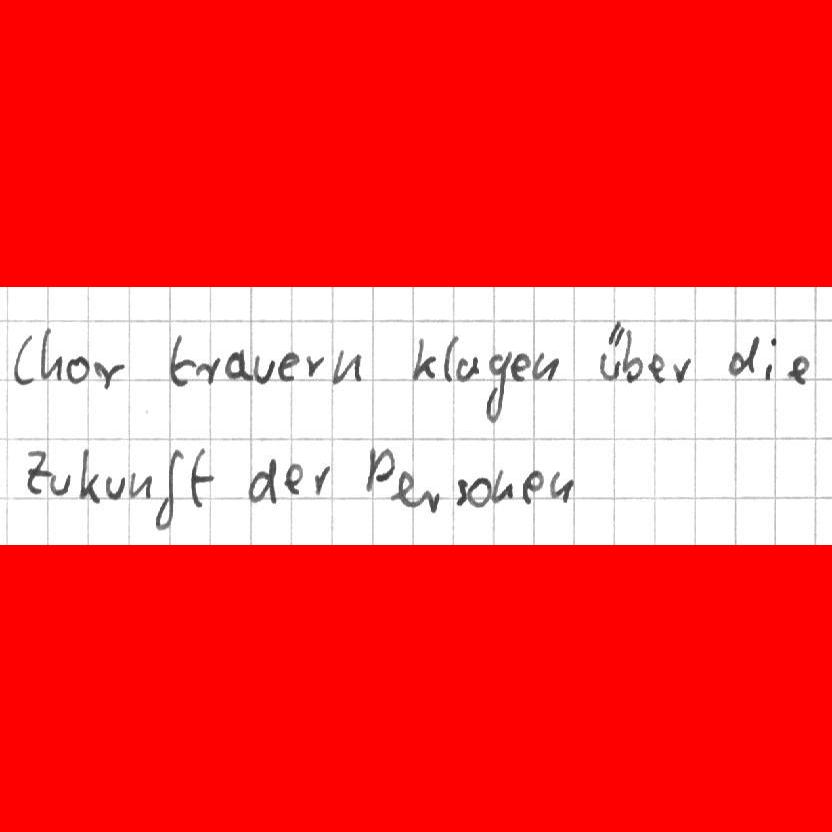 Chor trauern klagen über die
Zukunft der Personen